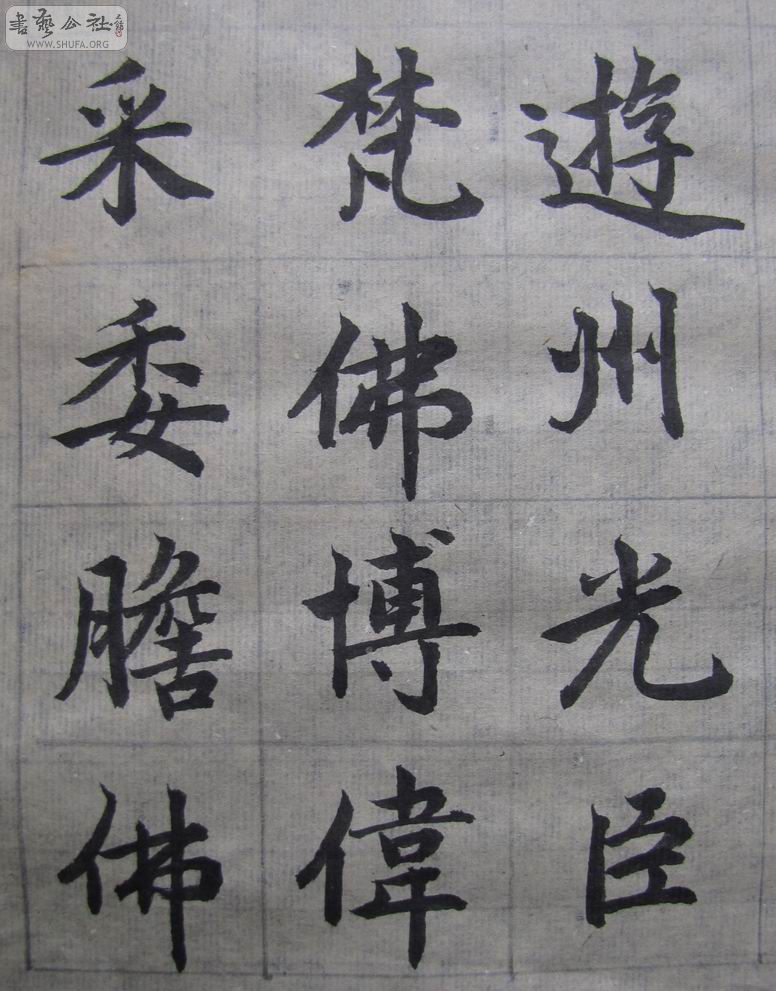 書藝公社
WWW.SHUFA.ORG
遊州光臣
梵佛博偉
采委膽佛